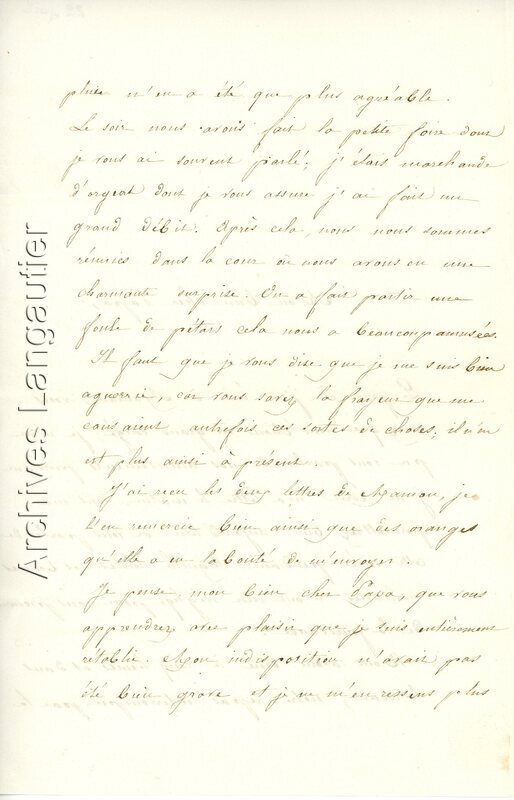 pluie n'en a été que plus agréable.
Le soir nous avons fait la petite foire dont
je vous ai souvent parlé; j'étais marchande
d'orgeat dont je vous assure j'ai fait un
grand débit. Après cela, nous nous sommes
réunies dans la cour où nous avons eu une
charmante surprise. On a fait partir une
foule de pétars cela nous a beaucoup amusées.
Il faut que je vous dise que je me suis bien
aguerrie, car vous savez la frayeur que me
causaient autrefois ces sortes de choses, il n'en
est plus ainsi à présent.
J'ai reçu les deux lettres de Maman, je
l'en remercie bien ainsi que des oranges
qu'elle a eu la bonté de m'envoyer.
Je pense, mon bien cher Papa, que vous
apprendrez avec plaisir que je suis entièrement
rétablie. Mon indisposition n'avait pas
été bien grave et je ne m'en ressens plus
Archives Langautier